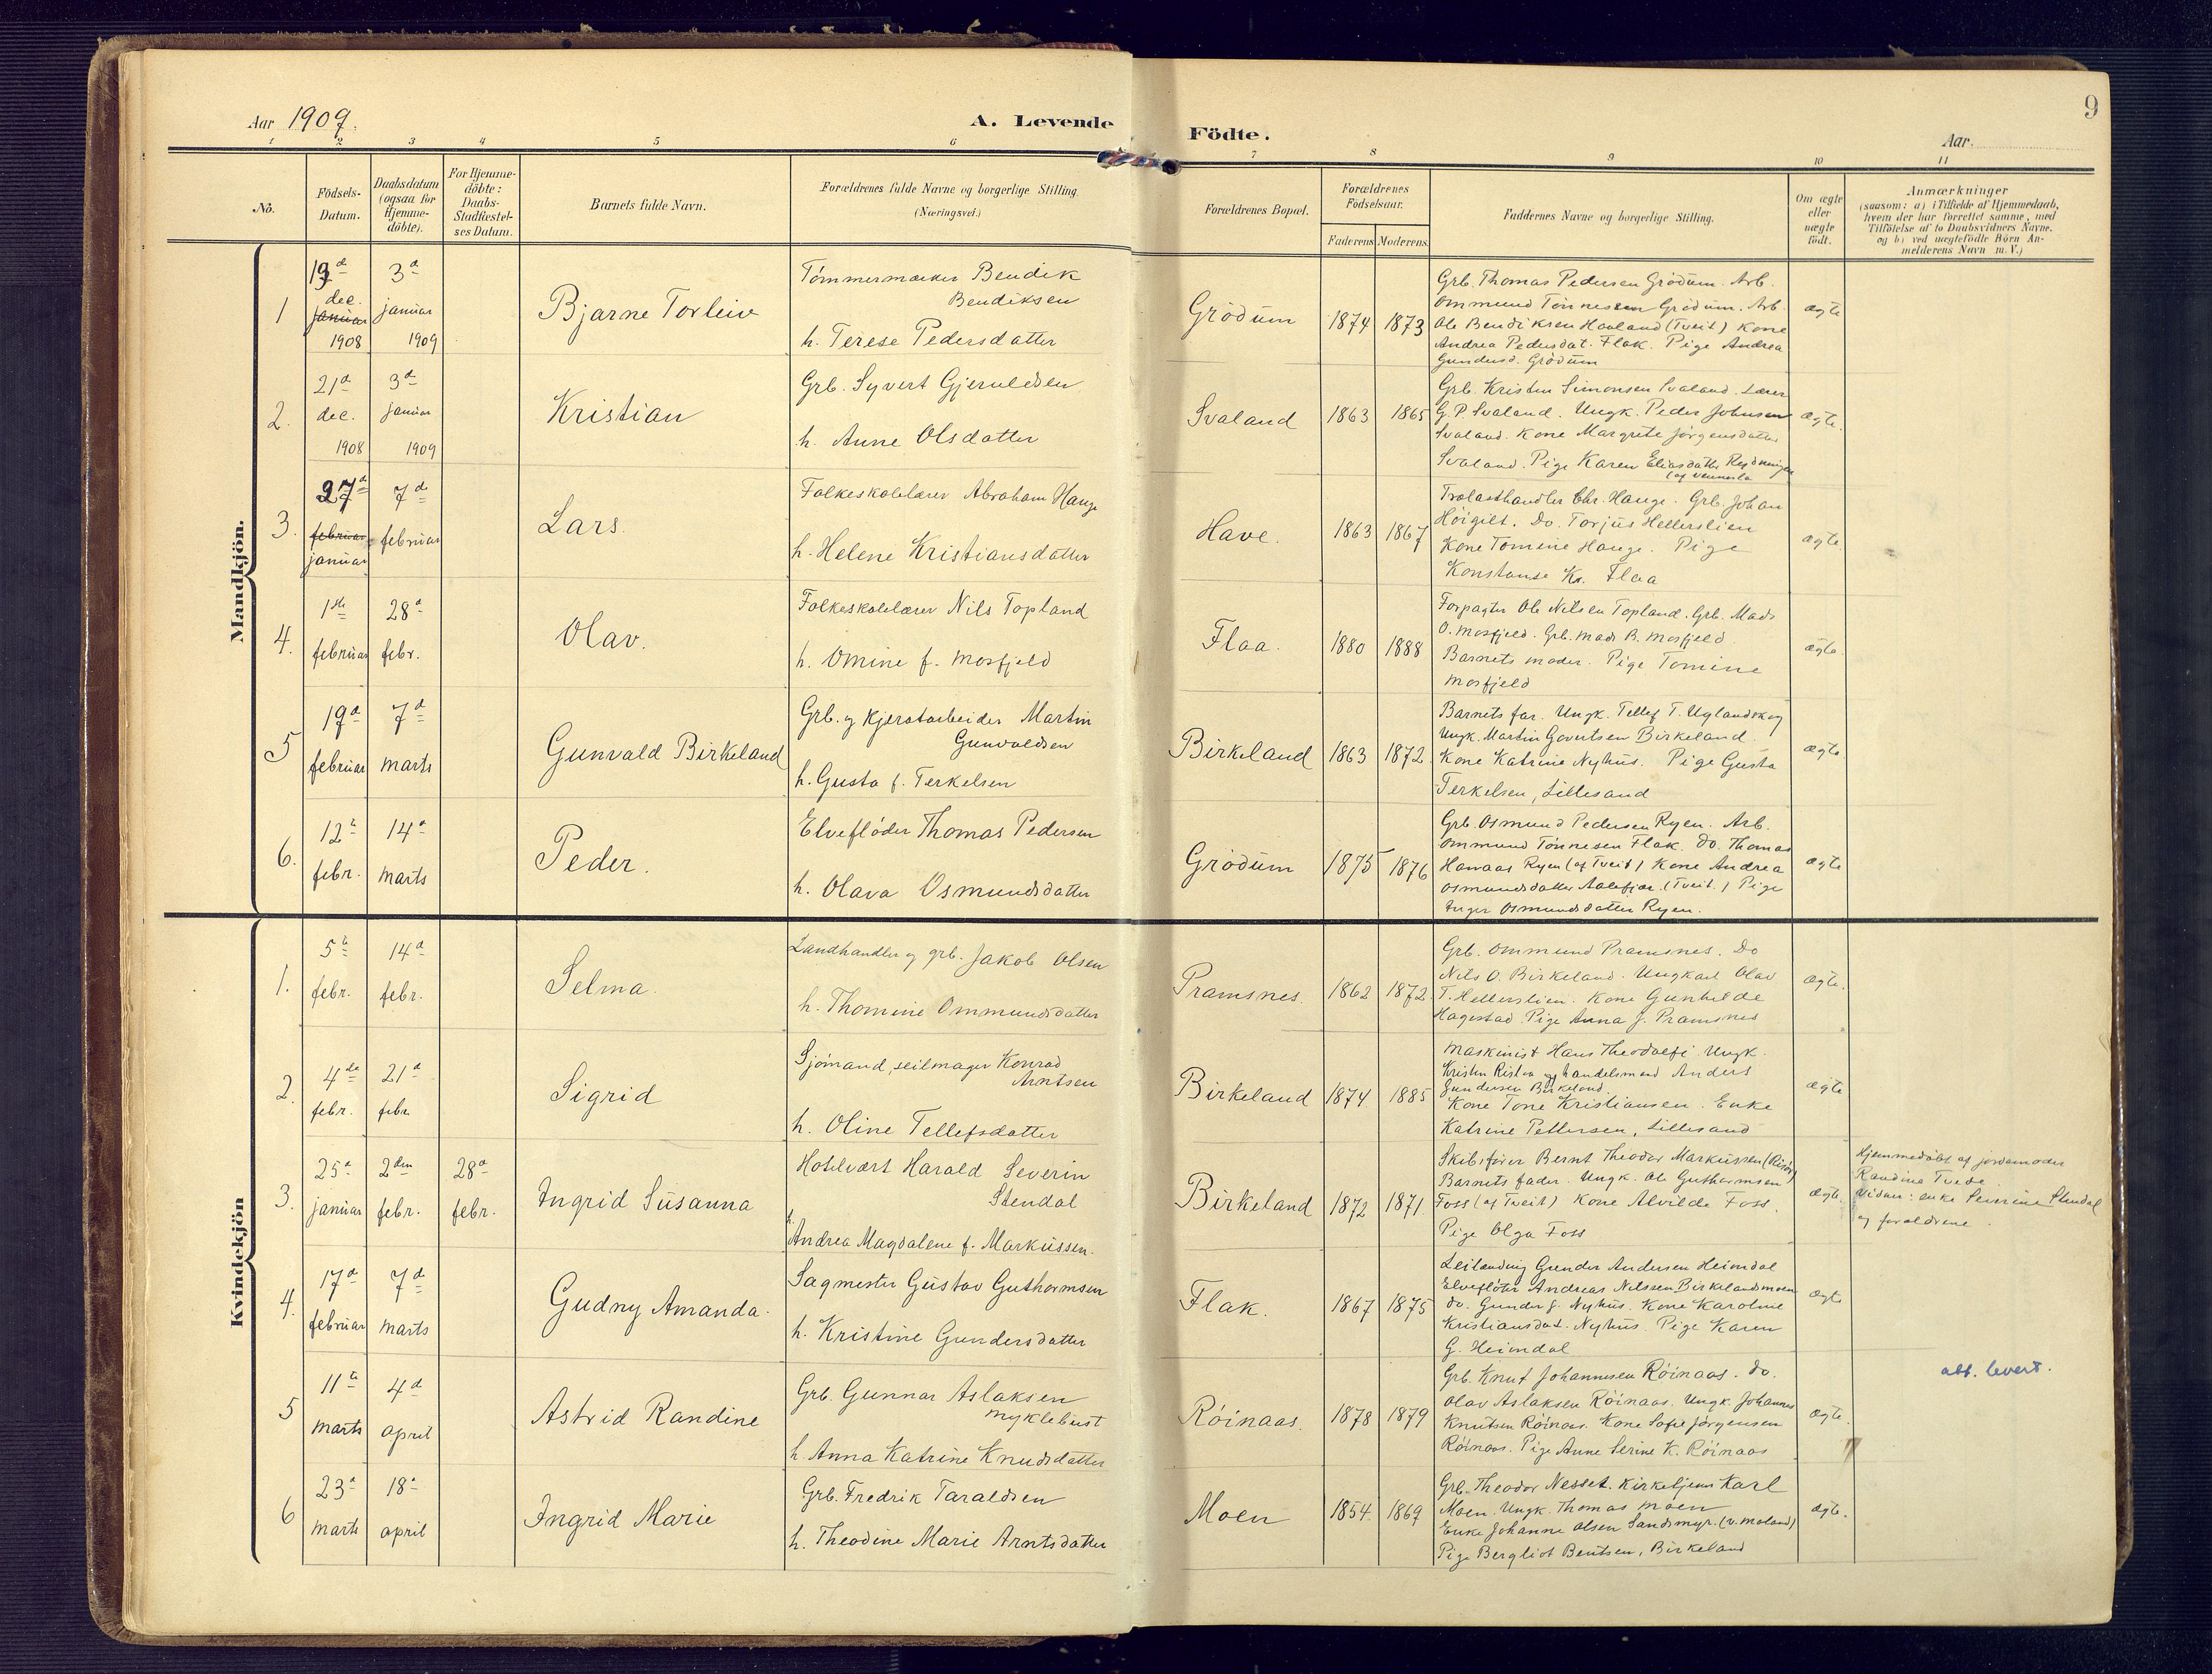 Aar 1909.
A. Levende Födte.
9
Aar
1 2 3 4 5 6 7 8 9 10 11
No.
Födsels-Datum.
Daabsdatum (ogsaa for Hjemmedöbte).
For Hjemmedöbte: Daabs-Stadfæstelses Datum.
Barnets fulde Navn.
Forældrenes fulde Navne og borgerlige Stilling (Næringsvei.)
Forældrenes Bopæl.
Forældrenes Födselsaar.
Faderens Moderens
Faddernes Navne og borgerlige Stilling.
Om ægte eller uægte födt.
Anmærkninger
(saasom: a) i Tilfælde af Hjemmedaab,
hvem der har forrettet samme, med
Tilföielse af to Daabsvidners Navne.
og b) ved uægtefödte Börn An-
melderens Navn m.V.)
Mandkjön.
1
19d dec. januar 1908
3d januar 1909
Bjarne Torleiv
Tömmermærker Bendik
Bendiksen
h. Terese Pedersdatter
Grödum
1874 1873
Grb. Thomas Pedersen Grödum. Arb.
Ommund Tönnessen Grödum. Arb.
Ole Bendiksen Haaland (Tveit) Kone
Andrea Pedersdat. Flak. Pige Andrea
Gundersd. Grödum
ægte
2.
21d dec. 1908
3d januar 1909
Kristian
Grb. Syvert Gjeruldsen
h. Anne Olsdatter
Svaland
1863 1865
Grb. Kristen Simonsen Svaland. Lærer
G. P. Svaland. Ungk. Peder Johnsen
Svaland. Kone Margrete Jörgensdatter
Svaland. Pige Karen Eliasdatter
(af Vennesla
ægte.
3.
27d februar januar
7d februar
Lars.
Folkeskolelærer Abraham Hauge
h. Helene Kristiansdatter
Have.
1863 1867
Trælasthandler Chr. Hauge. Grb. Johan
Höigilt. Do. Torjus Hellerslien
Kone Tomine Hauge. Pige
Konstanse Kr. Flaa
ægte.
4.
1ste februar
28d febr.
Olav.
Folkeskolelærer Nils Topland
h. Omine f. Mosfjeld
Flaa.
1880 1888
Forpagter Ole Nilsen Topland. Grb. Mads
O. Mosfjeld. Grb. Mads B. Mosfjeld.
Barnets moder. Pige Tomine
Mosfjeld
ægte
5
19d februar
7d marts
Gunvald Birkeland
Grb. og Kjeratarbeider Martin
Gunvaldsen
h. Gusta f. Terkelsen
Birkeland
1863 1872.
Barnets far. Ungk. Tellef T. Uglandskog
Ungk. Martin Govertsen Birkeland.
Kone Katrine Nyhus. Pige Gusta
Terkelsen, Lillesand
ægte
6.
12t febr.
14d marts
Peder.
Elveflöder Thomas Pedersen
h. Olava Osmundsdatter
Grödum
1875 1876
Grb. Osmund Pedersen Ryen. Arb.
Ommund Tönnesen Flak. Do. Thomas
Hanaas Ryen (af Tveit) Kone Andrea
Osmundsdatter Aalefjær. (Tveit.) Pige
Inger Osmundsdatter Ryen.
ægte
Kvindekjön
1.
5t febr.
14d febr.
Selma.
Landhandler og grb. Jakob Olsen
h. Thomine Ommundsdatter
Pramsnes.
1862 1872.
Grb. Ommund Pramsnes. Do
Nils O. Birkeland. Ungkarl Olav
T. Hellerslien. Kone Gunhilde
Hagestad. Pige Anna J. Pramsnes
ægte.
2.
4de febr.
21d febr
Sigrid
Sjömand, seilmager Konrad
Arntsen
h. Oline Tellefsdatter
Birkeland
1874 1885
Maskinist Hans Theodolfi. Ungk.
Kristen Risten og handelsmand Anders
Gundersen Birkeland.
Kone Tone Kristiansen. Enke
Katrine Pettersen, Lillesand
ægte
3.
25d januar
2den febr.
28d febr.
Ingrid Susanna
Hotelvært Harald Severin
Stendal
h. Andrea Magdalene f. Markussen.
Birkeland
1872 1871.
Skibsförer Bernt Theodor Markussen (Risör)
Barnets fader. Ungk. Ole Guthormsen
Foss (af Tveit) Kone Alvilde Foss.
Pige Olga Foss
ægte.
Hjemmedöbt af jordemoder
Randine Tvede.
Vidner: enke Severine Stendal
og forældrene.
4.
17d februar
7d marts
Gudny Amanda.
Sagmester Gustav Guthormsen
h. Kristine Gundersdatter
Flak.
1867 1875
Leilending Gunder Andersen Heimdal
Elveflöter Andreas Nilssen Birkelandsmoen
do. Gunder G. Nyhus. Kone Karoline
Kristiansdat. Nyhus. Pige Karen
G. Heimdal
ægte
5
11te marts
4d april
Astrid Randine
Grb. Gunnar Aslaksen
Myklebust
h. Anna Katrine Knudsdatter
Röinaas.
1878 1879
Grb. Knut Johannesen Röinaas. do.
Olav Aslaksen Röinaas. Ungk. Johannes
Knutsen Röinaas. Kone Sofie Jörgensen
Röinaas. Pige Anne Serine K. Röinaas
ægte.
att. levert.
6
23d marts
18d april
Ingrid Marie
Grb. Fredrik Taraldsen
h. Theodine Marie Arntsdatter
Moen
1854. 1869
Grb. Theodor Nesset. Kirketjener Karl
Moen. Ungk. Thomas Moen
Enke Johanne Olsen Sandsmyr. (V. Moland)
Pige Bergliot Bentsen, Birkeland
ægte.